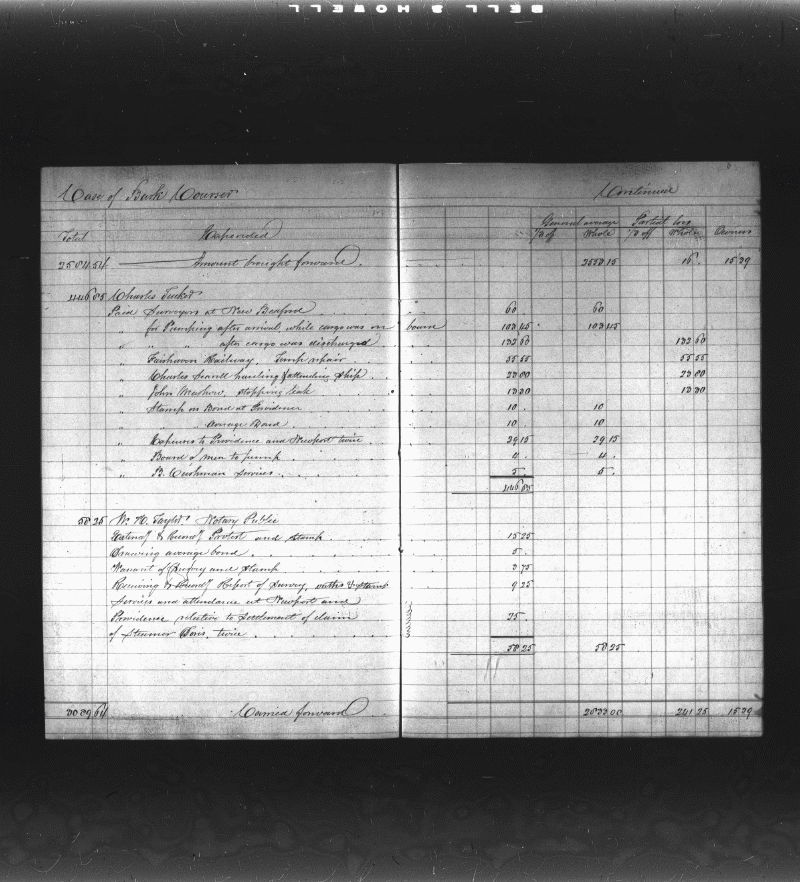 BELL & HOWELL
Case of Bark Courser Continued
General average Partial loss
Total Expended 1/3 off Whole 1/3 off Whole Owners
2584.54 Amount brought forward 2553.15 16. 15.39
446.85 Charles Tucker
Paid Surveyors at New Bedford 60 60
" for Pumping after arrival while cargo was on board 103.45 103.45
" " " after cargo was discharged 132.60 132.60
" Fairhaven Railway, Temp repair 55.55 55.55
" Charles Searell hauling & attending Ship 23.80 23.80
" John Mashow, stopping leak 13.30 13.30
" Stamp on Bond at Providence 10. 10.
" " Average Bond 10. 10.
" Expenses to Providence and Newport twice 29.15 29.15
" Board of men to pump 4. 4.
" B. Cushman Services 5. 5.
446.85
58.25 W. H. Taylor Notary Public
Extendg & Recordg Protest and Stamp 15.25
Drawing average bond 5.
Warrant of Survey and Stamp 3.75
Receiving & Recordg Report of Survey, oaths & Stamp 9.25
Services and attendance at Newport and
Providence relative to Settlement of claim 25.
of Steamer Doris, twice
58.25 58.25
3089.64 Carried forward 2833.00 241.25 15.39